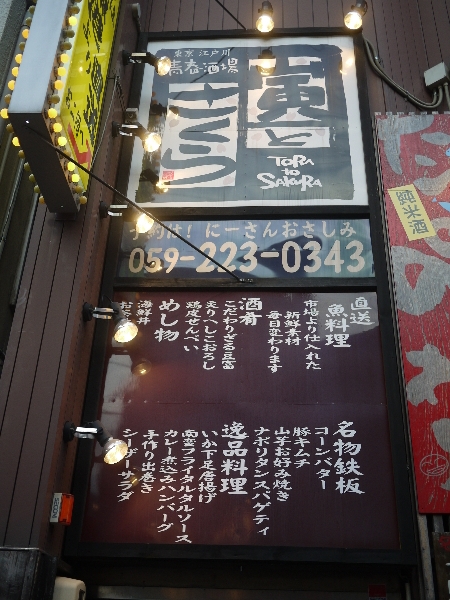 東京 江戸川
青春酒場
寅と
さくら
TORA
to
SAKURA
予約は！にーさんおさしみ
059-223-0343
直送
魚料理
市場より仕入れた
新鮮素材
毎日変わります
酒肴
こだわりざる豆腐
炙りへしこおろし
鶏皮せんべい
めし物
海鮮丼
名物鉄板
コーンバター
豚キムチ
山芋お好み焼き
ナポリタンスパゲティ
逸品料理
いか下足唐揚げ
南蛮フライタルタルソース
カレー煮込みハンバーグ
手作り出巻き
シーザーサラダ
純米酒